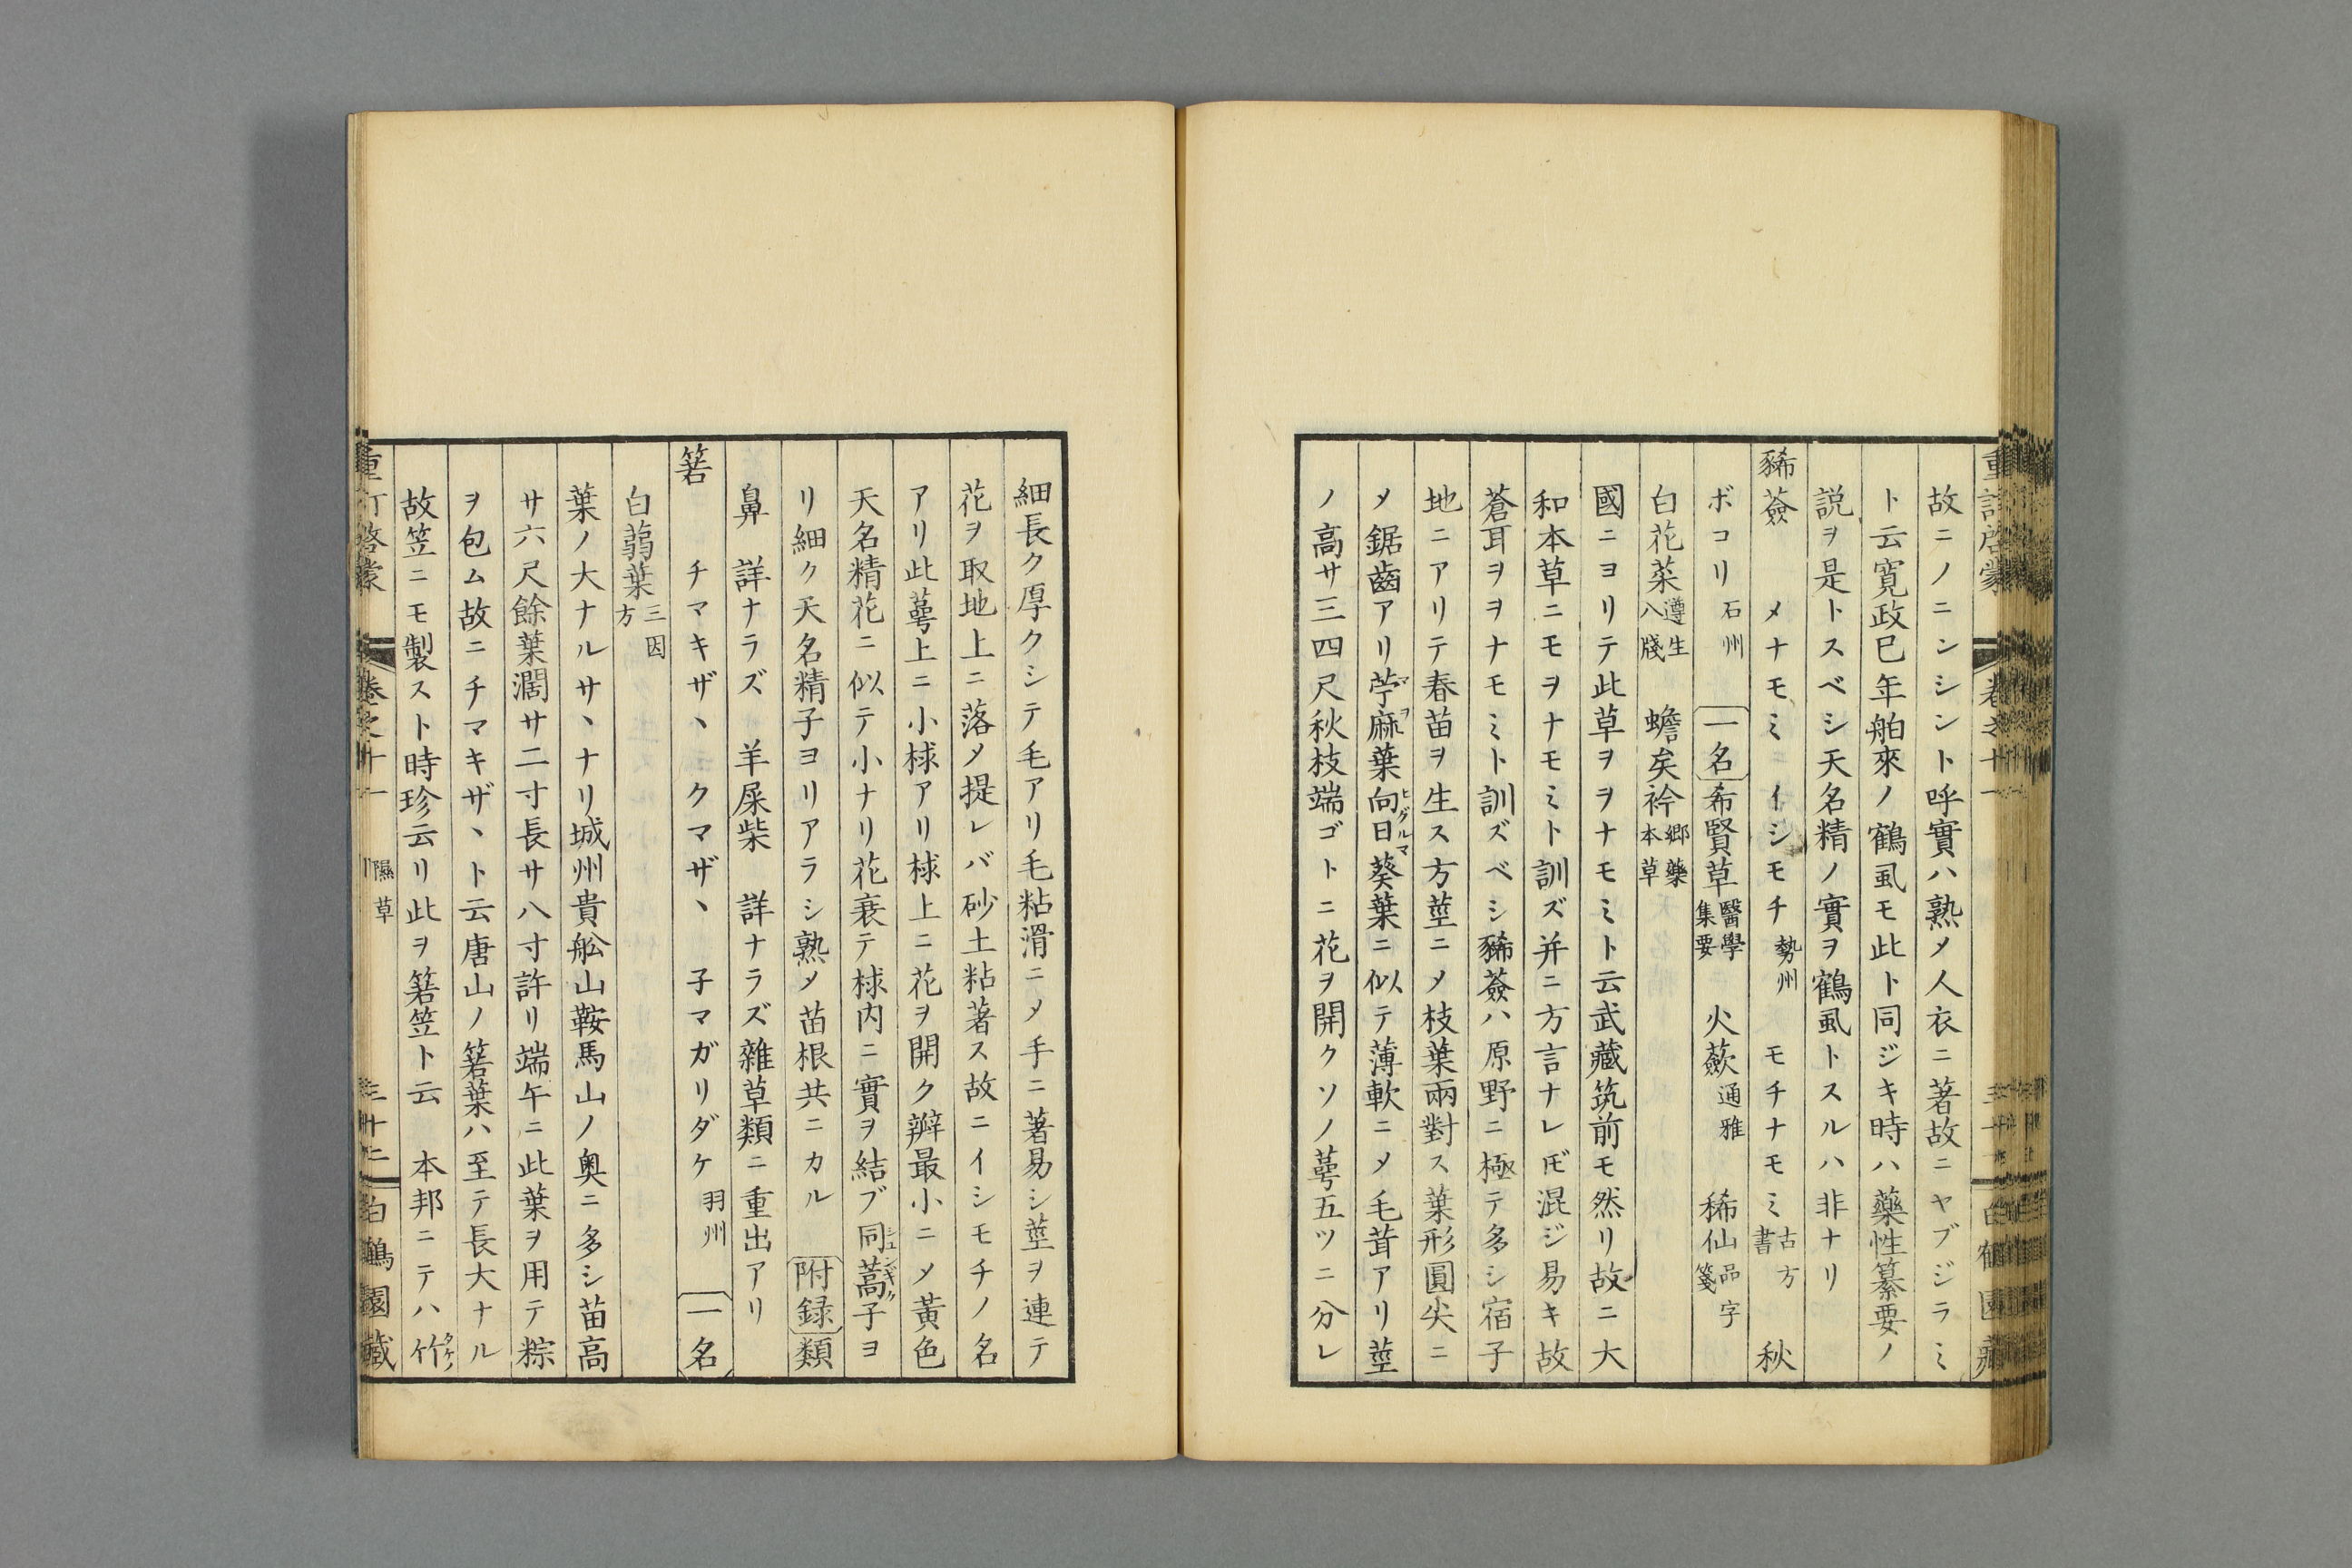 故ニノニンシント呼實ハ熟メ人衣ニ著故ニヤブジラミ
ト云寛政巳年舶來ノ鶴虱モ此ト同ジキ時ハ藥性纂要ノ
説ヲ是トスベシ天名精ノ實ヲ鶴虱トスルハ非ナリ
豨薟 メナモミ イシモチ勢州 モチナモミ古方書 秋
ボコリ石州 一名希賢草醫學集要 火蘞通雅 稀仙品字箋
白花菜遵生八牋 蟾矣衿郷藥本草
國ニヨリテ此草ヲヲナモミト云武藏筑前モ然リ故ニ大
和本草ニモヲナモミト訓ズ并ニ方言ナレ𪜈混ジ易キ故
蒼耳ヲヲナモミト訓ズベシ豨薟ハ原野ニ極テ多シ宿子
地ニアリテ春苗ヲ生ス方莖ニメ枝葉兩對ス葉形圓尖ニ
メ鋸齒アリ苧麻葉向日葵葉ニ似テ薄軟ニメ毛茸アリ莖
ノ高サ三四尺秋枝端ゴトニ花ヲ開クソノ蕚五ツニ分レ
細長ク厚クシテ毛アリ毛粘滑ニメ手ニ著易シ莖ヲ連テ
花ヲ取地上ニ落メ提レバ砂土粘著ス故ニイシモチノ名
アリ此蕚上ニ小梂アリ梂上ニ花ヲ開ク瓣最小ニメ黃色
天名精花ニ似テ小ナリ花衰テ梂内ニ實ヲ結ブ同蒿子ヨ
リ細ク天名精子ヨリアラシ熟メ苗根共ニカル 附録類
鼻 詳ナラズ 羊屎柴 詳ナラズ雜草類ニ重出アリ
箬 チマキザヽ クマザヽ 子マガリダケ羽州 一名
白蒻葉三因方
葉ノ大ナルサヽナリ城州貴舩山鞍馬山ノ奥ニ多シ苗高
サ六尺餘葉濶サ二寸長サ八寸許リ端午ニ此葉ヲ用テ粽
ヲ包ム故ニチマキザヽト云唐山ノ箬葉ハ至テ長大ナル
故笠ニモ製スト時珍云リ此ヲ箬笠ト云 本邦ニテハ竹
重訂啓蒙 卷之十一 隰草 三十二 白鶴園藏